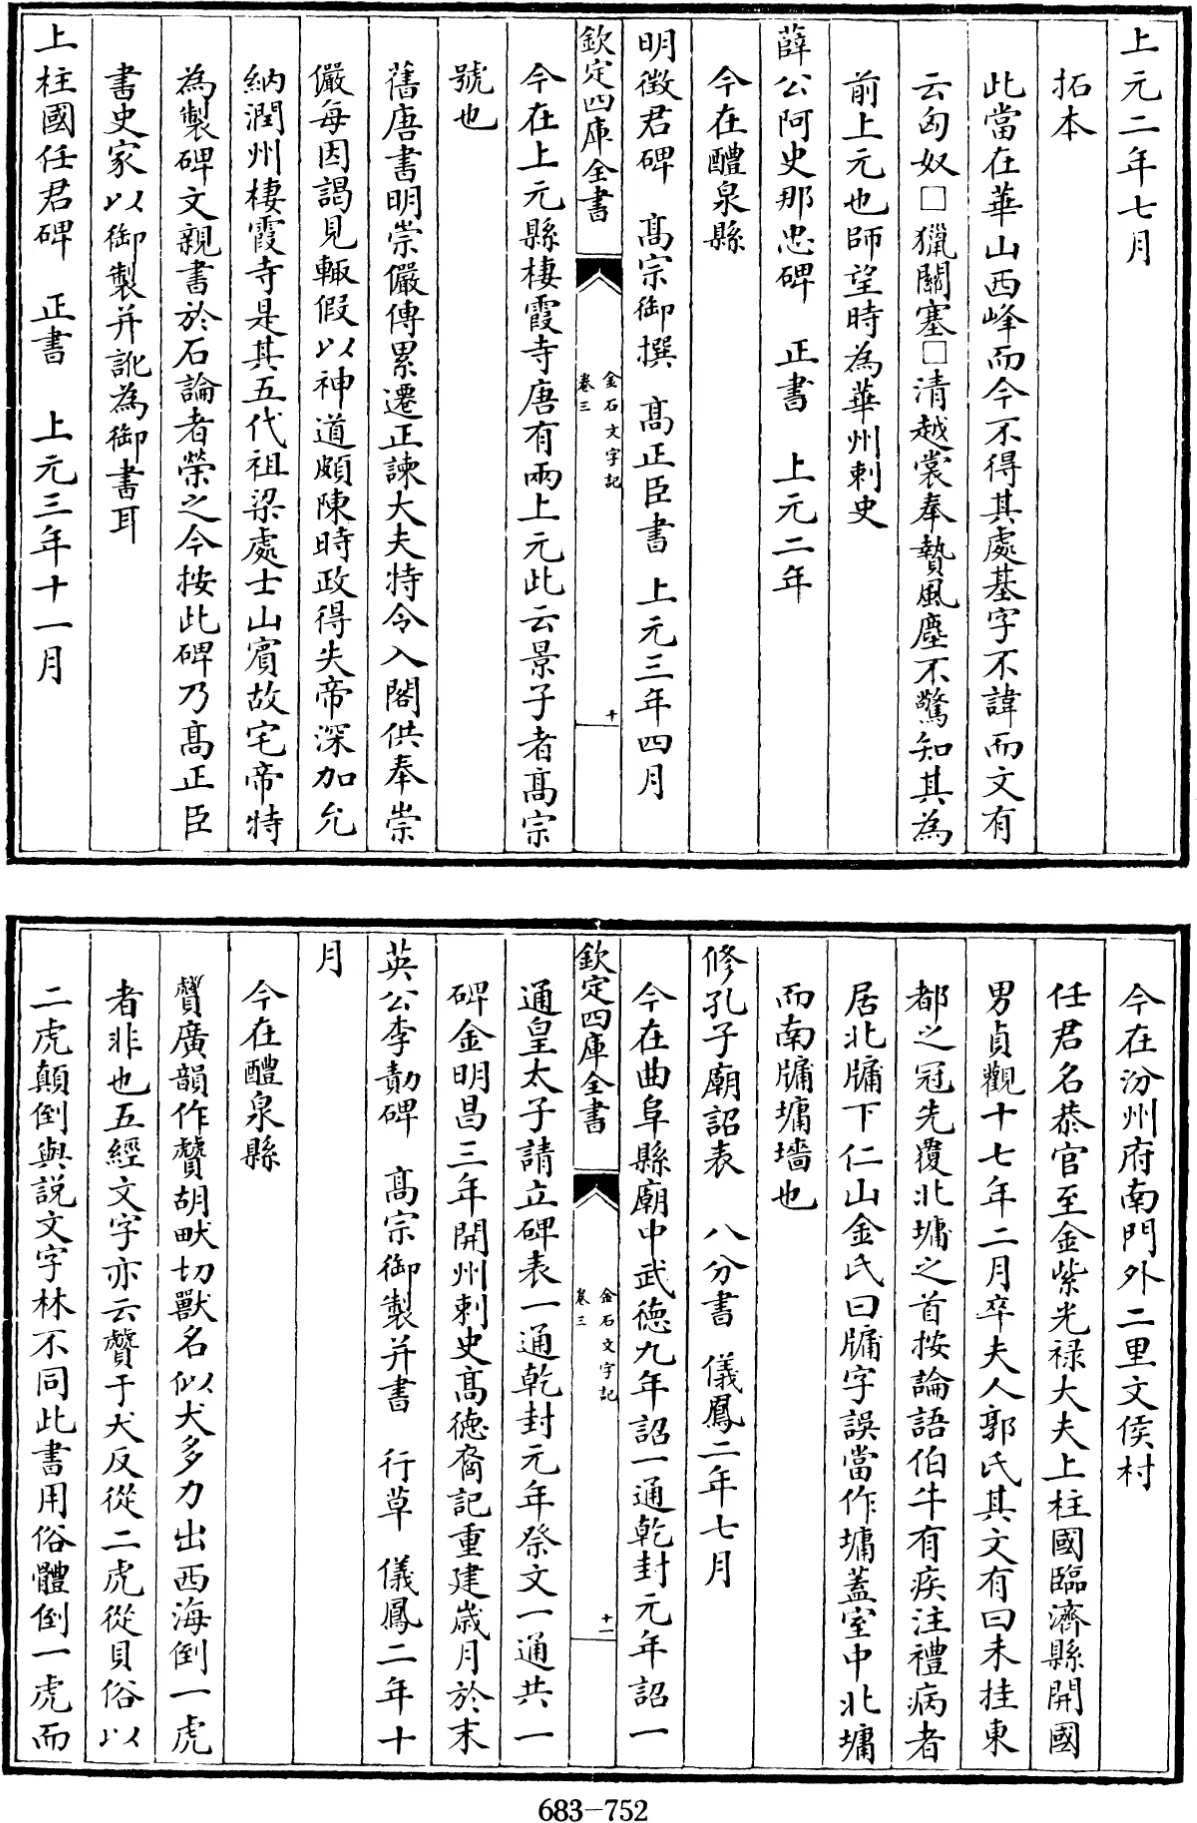 上元二年七月
拓本
此當在華山西峰而今不得其處基字不諱而文有
云匈奴□獵關塞□清越裳奉贄風塵不驚知其為
前上元也師望時為華州刺史
薛公阿史那忠碑　正書　上元二年
今在醴泉縣
明徵君碑　高宗御撰　高正臣書　上元三年四月
欽定四庫全書
金石文字記
卷三
十
今在上元縣棲霞寺唐有兩上元此云景子者高宗
號也
舊唐書明崇儼傳累遷正諫大夫特令入閣供奉崇
儼每因謁見輒假以神道頗陳時政得失帝深加允
納潤州棲霞寺是其五代祖梁處士山賓故宅帝特
為製碑文親書於石論者榮之今按此碑乃高正臣
書史家以御製并訛為御書耳
上柱國任君碑　正書　上元三年十一月
今在汾州府南門外二里文侯村
任君名恭官至金紫光祿大夫上柱國臨濟縣開國
男貞觀十七年二月卒夫人郭氏其文有曰未挂東
都之冠先覆北墉之首按論語伯牛有疾注禮病者
居北牖下仁山金氏曰牖字誤當作墉蓋室中北墉
而南牖墉墻也
修孔子廟詔表　八分書　儀鳳二年七月
今在曲阜縣廟中武德九年詔一通乾封元年詔一
欽定四庫全書
金石文字記
卷三
十一
通皇太子請立碑表一通乾封元年祭文一通共一
碑金明昌三年開州刺史高德裔記重建嵗月於末
英公李勣碑　高宗御製并書　行草　儀鳳二年十
月
今在醴泉縣
贙廣韻作贙胡畎切獸名似犬多力出西海倒一虎
者非也五經文字亦云贙于犬反從二虎從貝俗以
二虎顛倒與說文字林不同此書用俗體倒一虎而
683-752